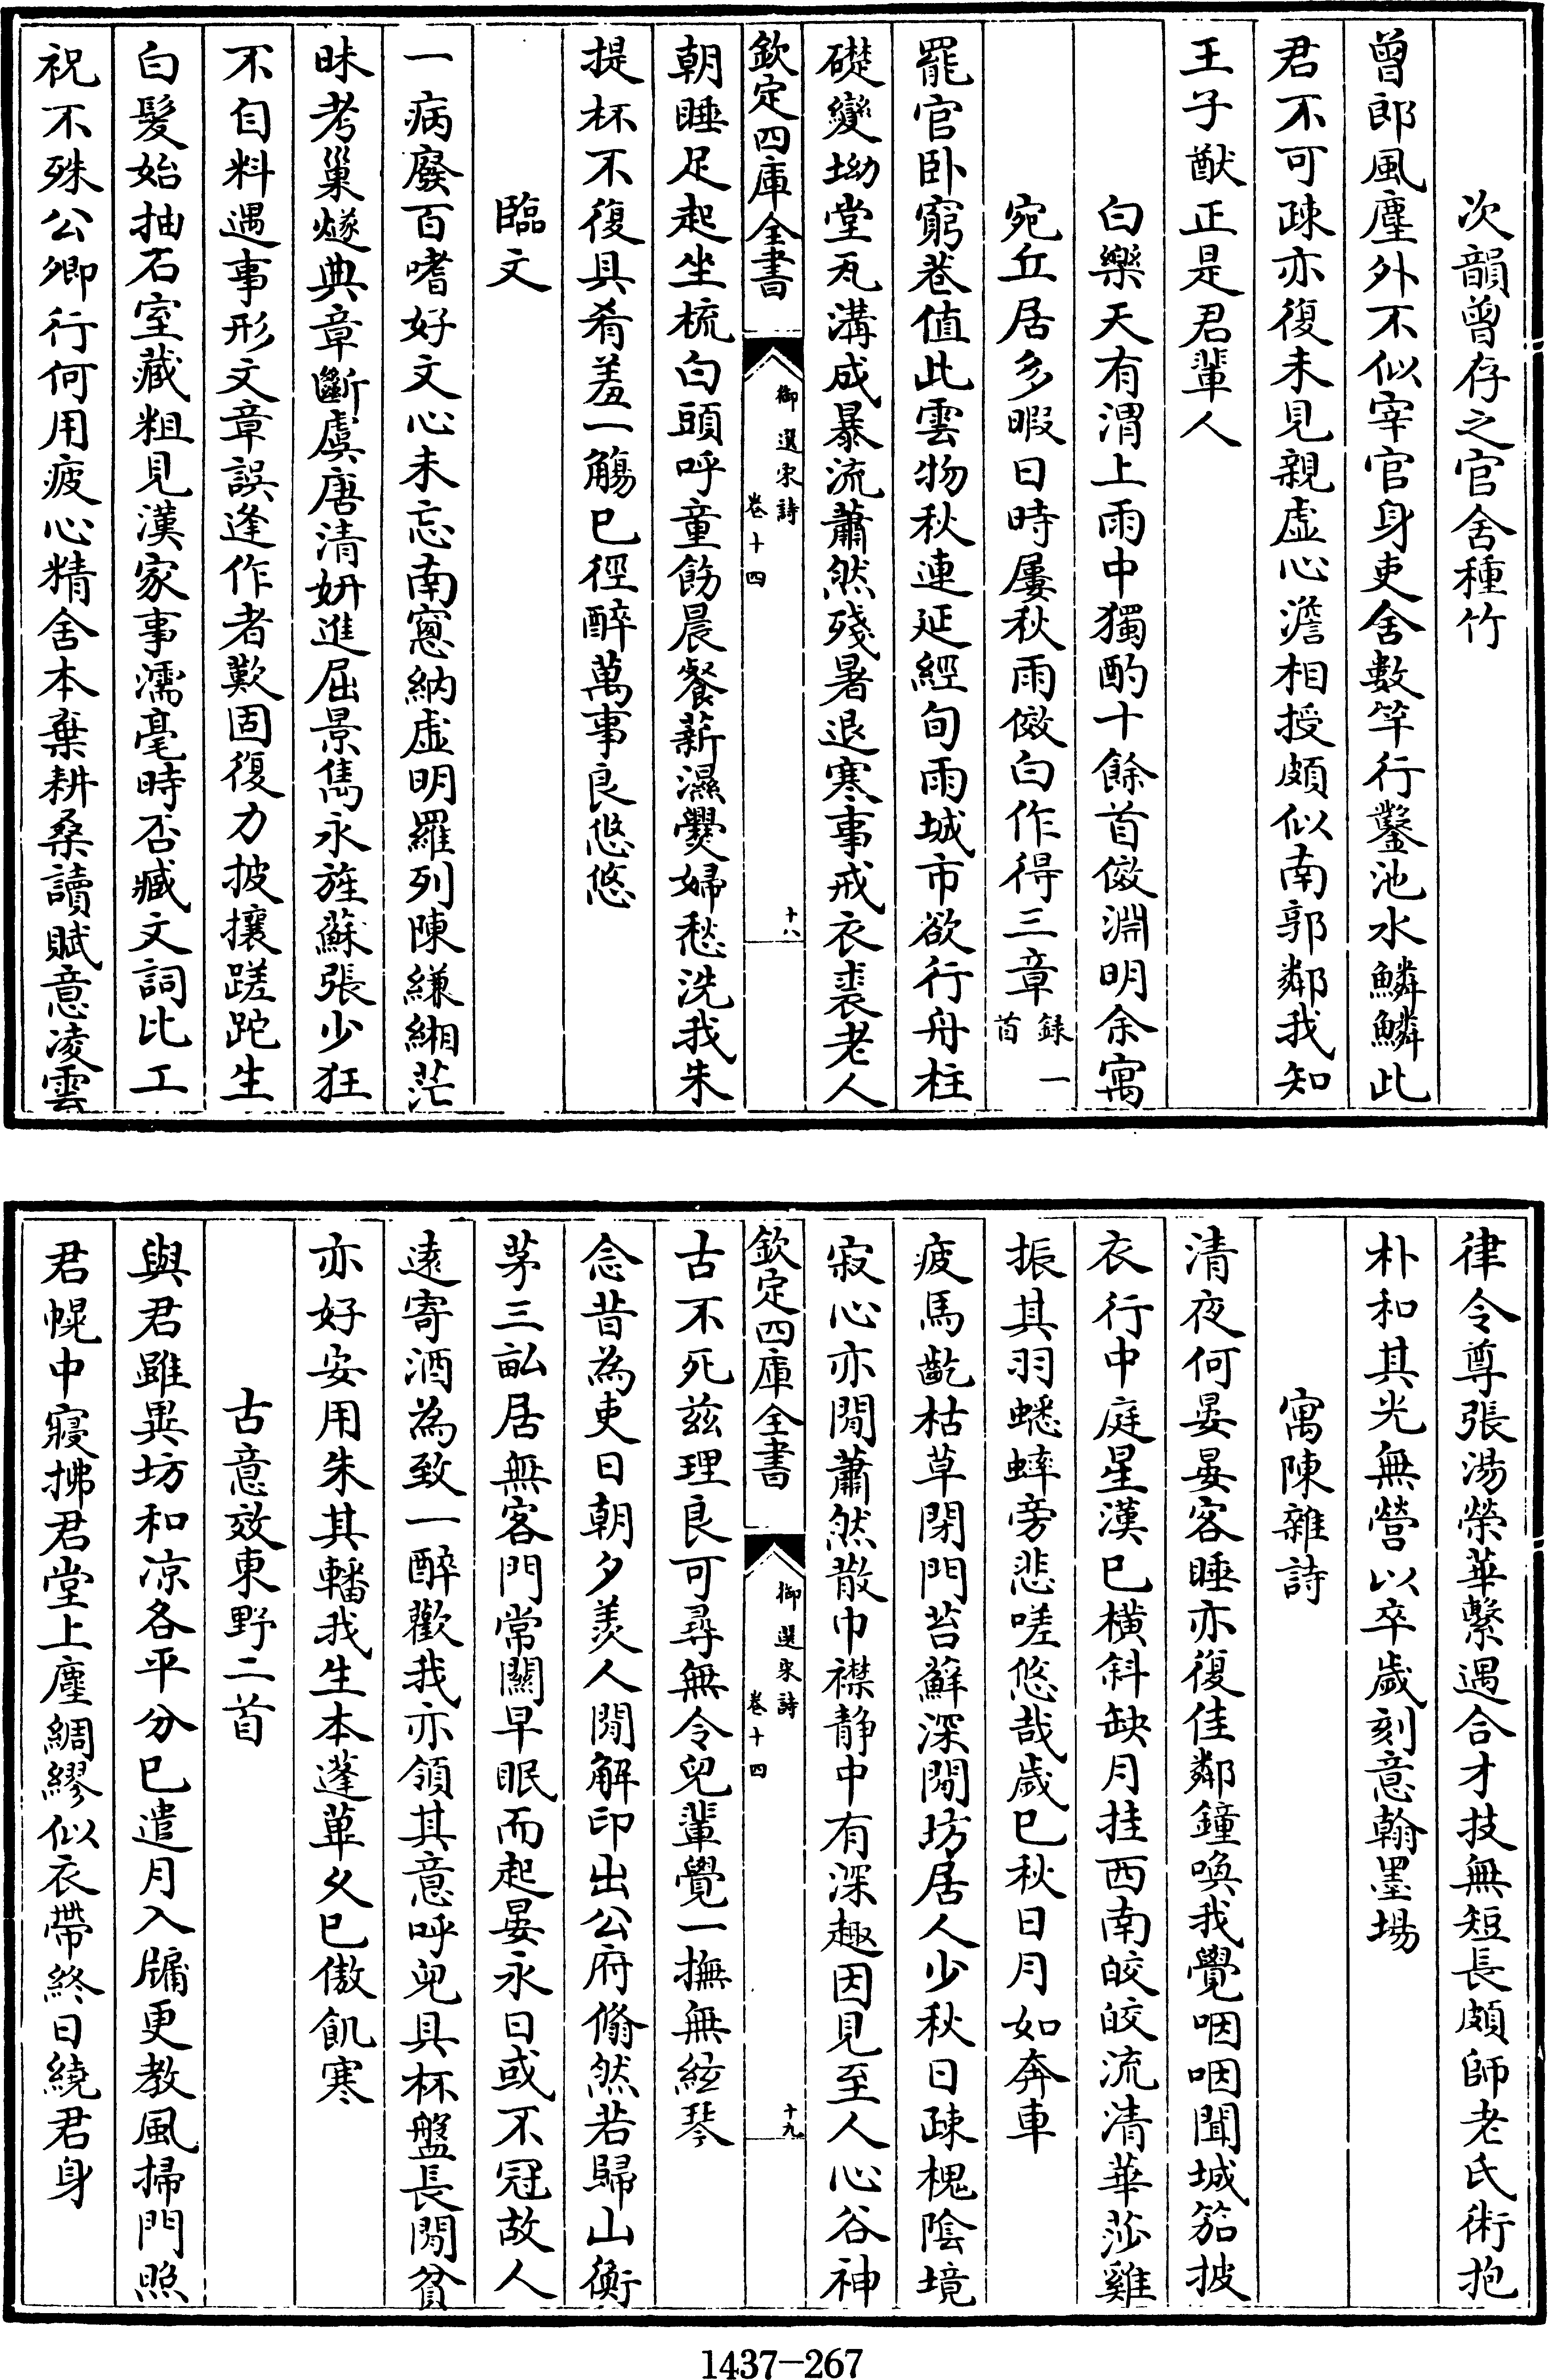 次韻曾存之官舍種竹
曾郎風塵外不似宰官身吏舍數竿行鑿池水鱗鱗此
君不可疎亦復未見親虚心澹相授頗似南郭鄰我知
王子猷正是君輩人
白樂天有渭上雨中獨酌十餘首傚淵明余寓
宛丘居多暇日時屢秋雨傚白作得三章録一首
罷官卧窮巷值此雲物秋連延經旬雨城市欲行舟柱
礎變坳堂瓦溝成暴流蕭然殘暑退寒事戒衣裘老人
欽定四庫全書
御選宋詩
卷十四
十八
朝睡足起坐梳白頭呼童飭晨餐薪濕爨婦愁洗我朱
提杯不復具肴羞一觴已徑醉萬事良悠悠
臨文
一病廢百嗜好文心未忘南窻納虚明羅列陳縑緗茫
昧考巢燧典章斷虞唐清妍進屈景雋永旌蘇張少狂
不自料遇事形文章誤逢作者歎固復力披攘蹉跎生
白髮始抽石室藏粗見漢家事濡毫時否臧文詞比工
祝不殊公卿行何用疲心精舍本棄耕桑讀賦意凌雲
律令尊張湯榮華繫遇合才技無短長頗師老氏術抱
朴和其光無營以卒歲刻意翰墨場
寓陳雜詩
清夜何晏晏客睡亦復佳鄰鐘喚我覺咽咽聞城笳披
衣行中庭星漢已橫斜缺月挂西南皎皎流清華莎雞
振其羽蟋蟀旁悲嗟悠哉歲已秋日月如奔車
疲馬齕枯草閉門苔蘚深閒坊居人少秋日疎槐陰境
寂心亦閒蕭然散巾襟静中有深趣因見至人心谷神
欽定四庫全書
御選宋詩
卷十四
十九
古不死兹理良可尋無令兒輩覺一撫無絃琴
念昔為吏日朝夕羨人閒解印出公府翛然若歸山衡
茅三畝居無客門常關早眠而起晏永日或不冠故人
遠寄酒為致一醉歡我亦領其意呼兒具杯盤長閒貧
亦好安用朱其轓我生本蓬蓽久已傲飢寒
古意效東野二首
與君雖異坊和凉各平分已遣月入牖更教風掃門照
君幌中寢拂君堂上塵綢繆似衣帶終日繞君身
1437-267